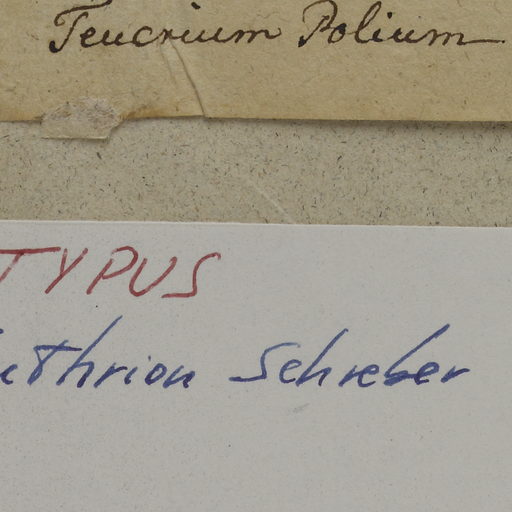 Teucrium Polium
TYPUS
uthrion Schreber